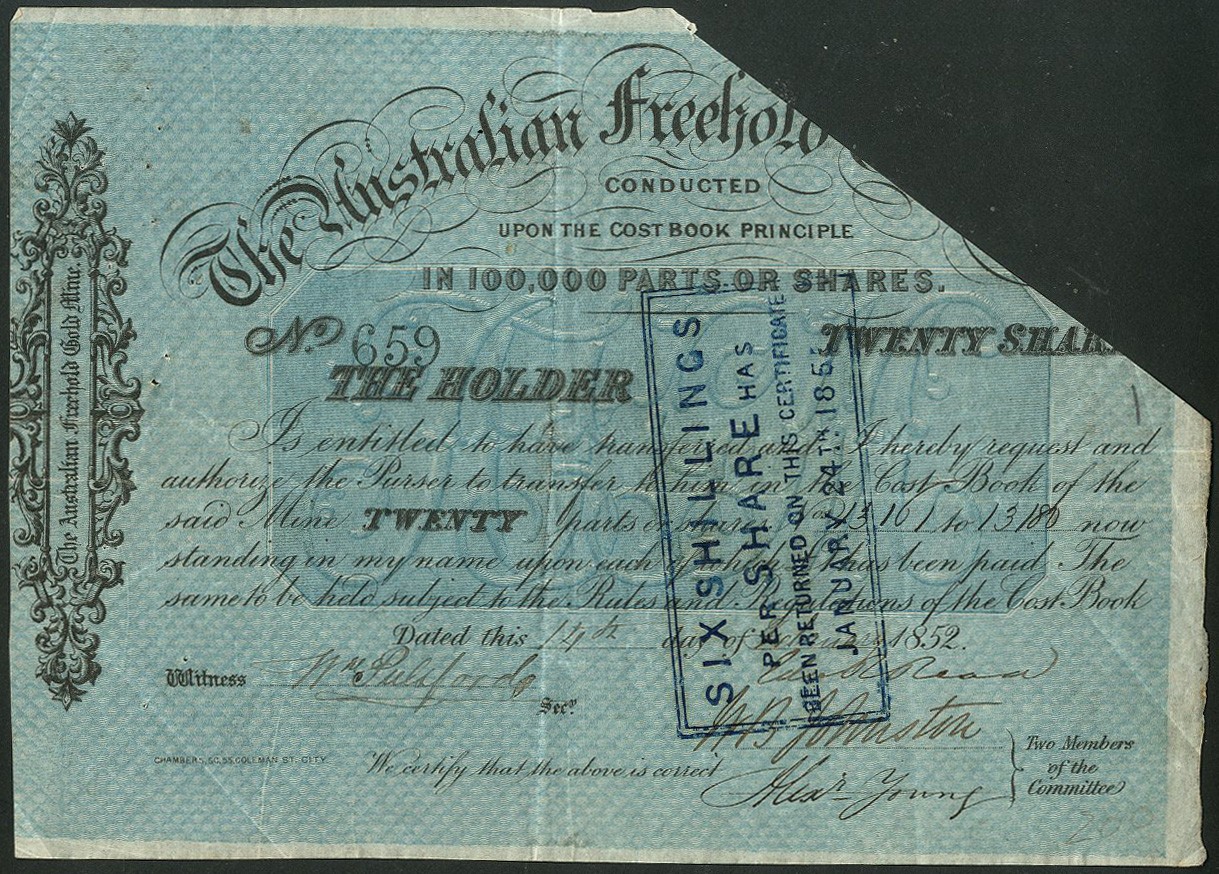 The Australian Freehold
CONDUCTED
UPON THE COST BOOK PRINCIPLE
IN 100,000 PARTS OR SHARES.
No. 659
TWENTY SHAR
THE HOLDER
Is entitled to have transferred and I hereby request and
authorize the Purser to transfer to him in the Cost Book of the
said Mine TWENTY parts or shares Nos 13161 to 13180 now
standing in my name upon each of which has been paid The
same to be held subject to the Rules and Regulations of the Cost Book
Dated this 14th day of February 1852.
Witness Wm Pulsford
Secy.
W B Johnston
Alexr Young
We certify that the above is correct
Two Members
of the
Committee
CHAMBERS, SC, 55, COLEMAN ST. CITY
The Australian Freehold Gold Mine
SIX SHILLINGS
PER SHARE HAS
BEEN RETURNED ON THIS CERTIFICATE
JANUARY 24TH 185